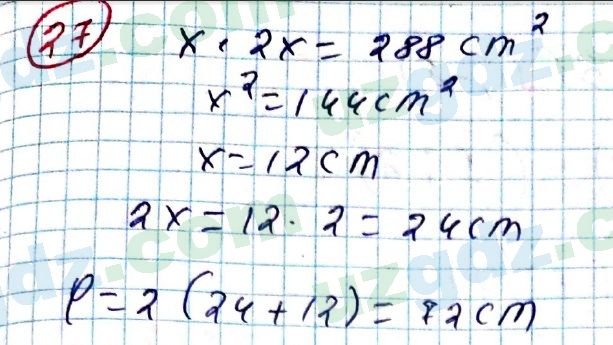 27
x · 2x = 288 cm²
x² = 144 cm²
x = 12 cm
2x = 12 · 2 = 24 cm
P = 2 (24 + 12) = 72 cm
uzgdz.com